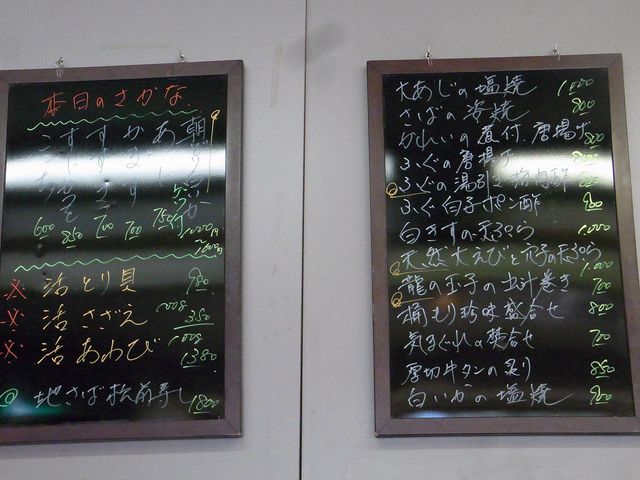 本日のさかな
朝どりいか 1000円
あじ 造り付 750
かます 700
すずき 700
すじあら 850
こち 600
活とり貝 980
活さざえ 100g 350
活あわび 100g 1380
地さば松前寿し 1800
大あじの塩焼 1,000
さばの姿焼 800
かれいの煮付、唐揚げ 800
ふぐの唐揚げ
ふぐの湯引き 梅肉酢
ふぐ白子ポン酢 900
白きすの天ぷら 1,000
天然大えびと穴子の天ぷら 1,000
龍の玉子の出汁巻き 700
桶もり珍味盛合せ 800
気まぐれ盛合せ 700
厚切牛タンの炙り 850
白いかの塩焼 900